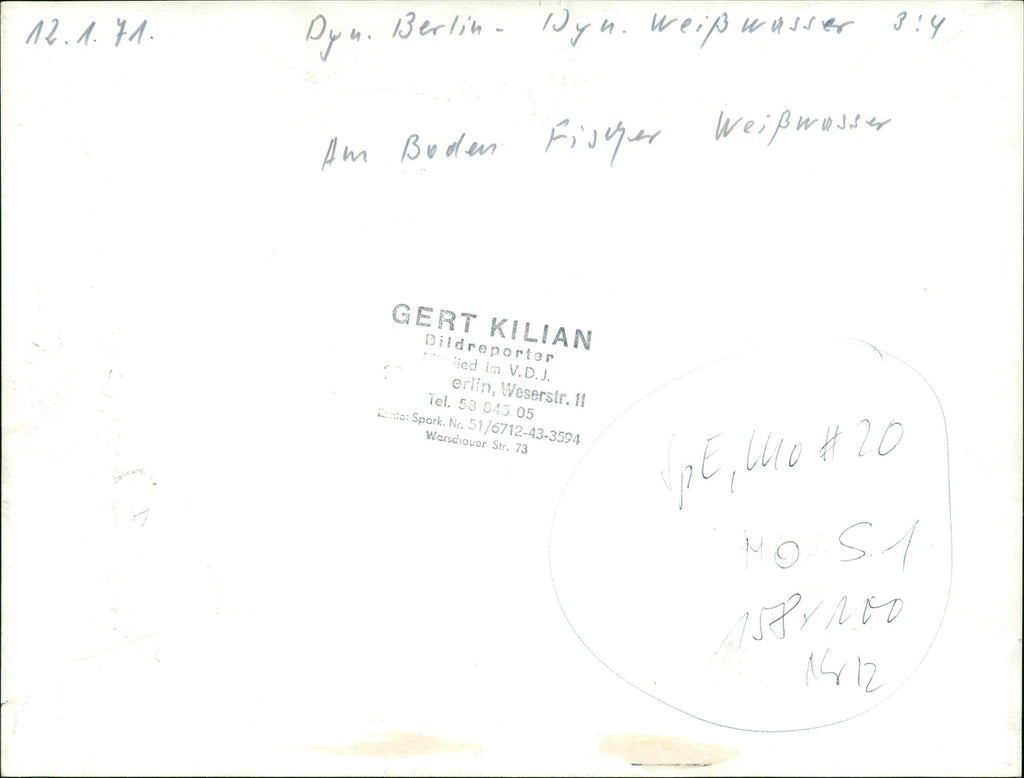 12.1.71. Dyn. Berlin - Dyn. Weißwasser 3:4
Am Boden Fischer Weißwasser
GERT KILIAN
Bildreporter
lied im V.D.J.
erlin, Weserstr. 11
Tel. 58 845 05
Spark. Nr. 51/6712-43-3594
Warschauer Str. 73
SpE, Mo # 20
MO S. 1
158 x 100